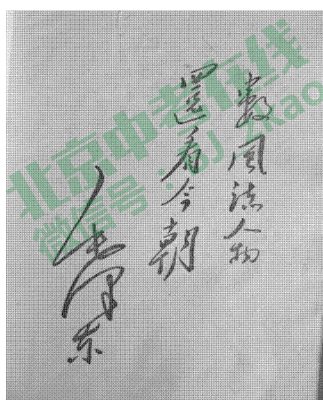 数风流人物
还看今朝
毛泽东
北京中考在线
微信号:BJ_zkao